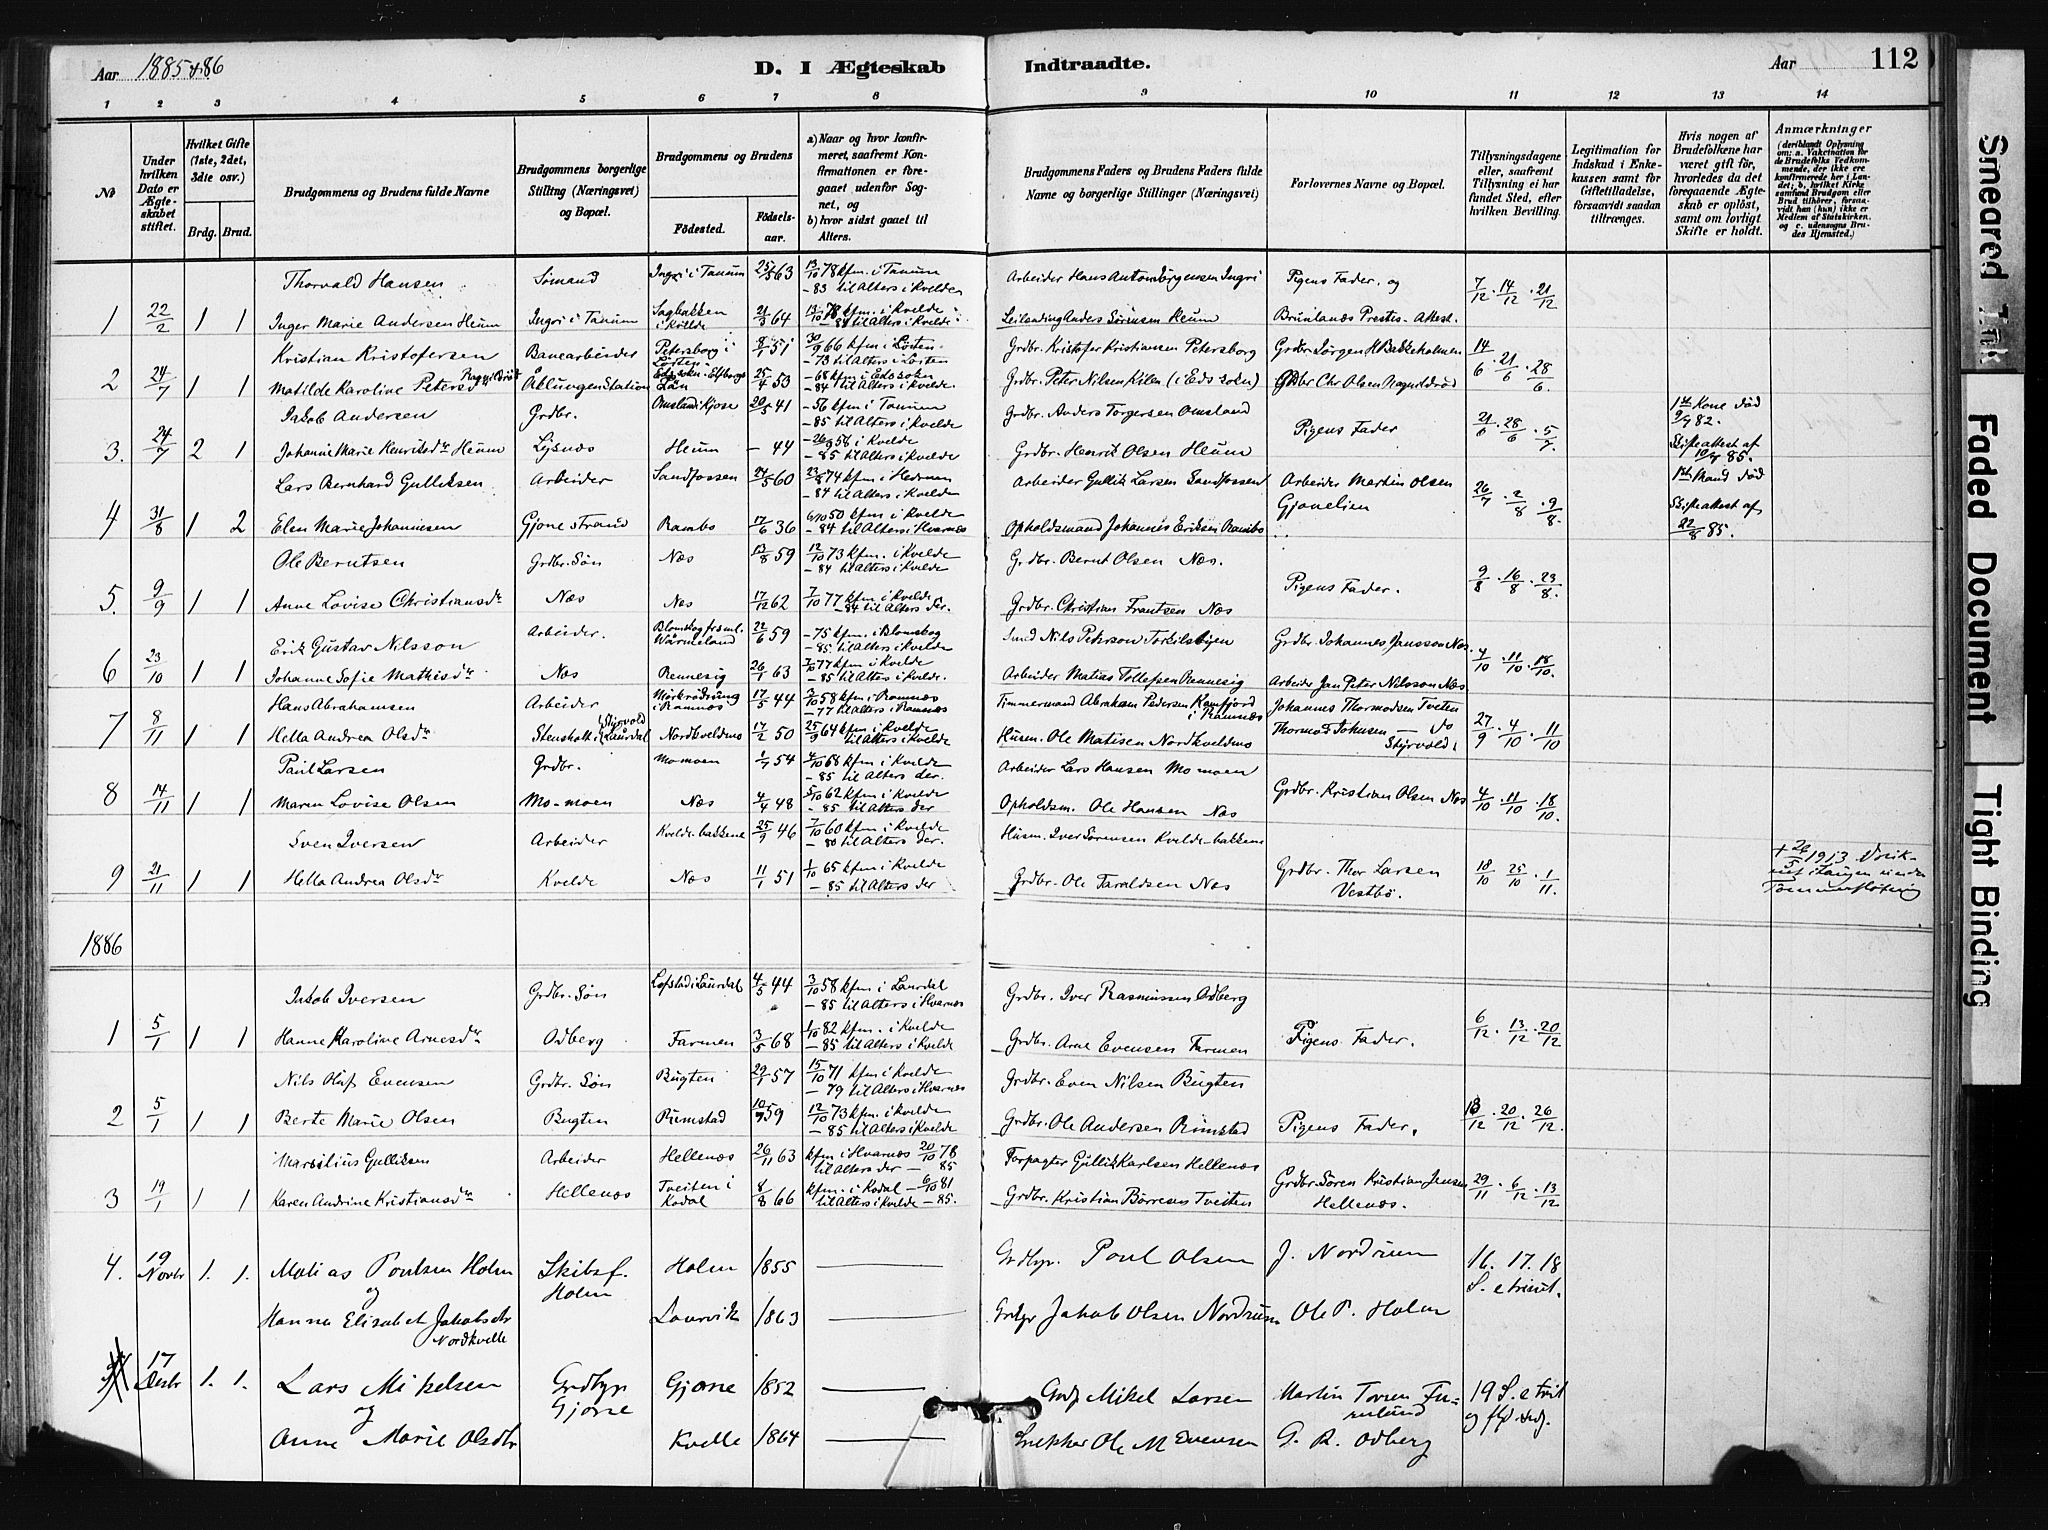 Aar 1885 & 86
D. I Ægteskab Indtraadte.
Aar
112
1 2 3 4 5 6 7 8 9 10 11 12 13 14
No
Under hvilken Dato er Ægteskabet stiftet.
Hvilket Gifte (1ste, 2det, 3die osv.)
Brdg. Brud.
Brudgommens og Brudens fulde Navne
Brudgommens borgerlige Stilling (Næringsvei) og Bopæl.
Brudgommens og Brudens
Födested.
Födsels-aar.
a) Naar og hvor konfirmeret, saafremt Konfirmationen er foregaaet udenfor Sognet, og
b) hvor sidst gaaet til Alters.
Brudgommens Faders og Brudens Faders fulde Navne og borgerlige Stillinger (Næringsvei)
Forlovernes Navne og Bopæl.
Tillysningsdagene eller, saafremt Tillysning ei har fundet Sted, efter hvilken Bevilling.
Legitimation for Indskud i Enkekassen samt for Giftetilladelse, forsaavidt saadan tiltrænges.
Hvis nogen af Brudefolkene har været gift för, hvorledes da det foregaaende Ægteskab er oplöst, samt om lovligt Skifte er holdt.
Anmærkninger (deriblandt Oplysning om: a. Vakcination for de Brudefolks Vedkommende, der ikke ere konfirmerede her i Landet; b, hvilket Kirkesamfund Brudgom eller Brud tilhörer, forsaavidt han (hun) ikke er Medlem af Statskirken, og c. udensogns Brudes Hjemsted.)
Thorvald Hansen Sömand Ingri i Tanum 25/3 63 13/10 78 kfm. i Tanum
- 83 til Alters i Kvelde
Arbeider Hans Anton Jörgensen Ingri Pigens Fader og 7/12 · 14/12 · 21/12
1 22/2 1 1 Inger Marie Andersen Heum Ingri i Tanum Sagbakken i Kvelde 21/3 64 13/10 78 kfm. i Kvelde
- 84 til Alters i Kvelde
Leilending Anders Sörensen Heum Brunlanæs Prestes-Attest.
Kristian Kristofersen Banearbeider Petersborg i Lösten 8/1 51 30/9 66 kfm i Lösten
- 73 til Alters i Lösten
Grdbr. Kristofer Kristiansen Petersborg Grdbr. Jörgen H Bakkeholmen 14/6 · 21/6 · 28/6
2 24/7 1 1 Matilde Karoline Petersdr Åklungen Station 25/4 53 - 68 kfm i Eds sokn
- 84 til Alters i Kvelde.
Grdbr. Peter Nilsen Kilen (i Eds sokn) Grdbr Chr. Olsen
Jakob Andersen Grdbr. Omsland i Kjose 20/5 41 - 56 kfm i Tanum
- 85 til Alters i Kvelde
Grdbr. Anders Torgersen Omsland Pigens Fader 21/6 · 28/6 · 5/7
1ste Kone död 9/7 82.
Skifteattest af 10/7 85.
3. 24/7 2 1 Johanne Marie Henriksdr Heum Lysnæs Heum - 44 - 26/9 58 i Kvelde
- 85 til Alters i Kvelde
Grdbr. Henrik Olsen Heum
Lars Bernhard Gulliksen Arbeider Sandfossen 24/5 60 23/8 74 kfm i Hedrum
- 84 til Alters i Kvelde
Arbeider Gullik Larsen Sandfossen Arbeider Martin Olsen Gjonelien 26/7 · 2/8 · 9/8.
1st. Mand död
Skifteattest af 22/8 85.
4 31/8 1 2 Elen Marie Johannesen Gjone strand Rambo 17/6 36 6/10 50 kfm. i Kvelde
- 84 til Alters i Hvarnæs
Opholdsmand Johannes Eriksen Rambo
Ole Berntsen Grdbr. Sön Næs 13/8 59 12/10 73 kfm. i Kvelde
- 84 til Alters i Kvelde
Grdbr. Bernt Olsen Næs. Pigens Fader. 9/8 · 16/8 · 23/8.
5. 9/9 1 1 Anne Lovise Christiansdr Næs Næs 17/12 62 7/10 77 kfm i Kvelde
- 84 til Alters der.
Grdbr. Christian Frantsen Næs
Erik Gustav Nilsson Arbeider. Blomskog Wärmeland 22/6 59 - 75 kfm. i Blomskog
- 85 til Alters i Kvelde
Nils Peterson Torkilsbyen Grdbr. Johannes Jansson Næs. 4/10 · 11/10 · 18/10.
6 23/10 1 1 Johanne Sofie Mathisdr Næs Rennesig 26/1 63 7/10 77 kfm. i Kvelde
- 85 til Alters i Kvelde.
Arbeider Matias Tollefsen Rennesig Arbeider Jan Peter Nilsson Næs
Hans Abrahamsen Arbeider i Ramnæs 17/5 44 3/10 58 kfm. i Ramnæs
- 77 til Alters i Ramnæs
Timmermand Abraham Pedersen Kamfjord i Ramnæs Johannes Thormodsen Tveten 27/9 · 4/10 · 11/10
7 8/11 1 1 Hella Andrea Olsdr Stensholt i Styrvold Laurdal Nordkveldmo 17/2 50 25/9 64 kfm. i Kvelde
til Alters i Kvelde
Husm. Ole Matisen Nordkveldmo Thormod Johnsen - do Styrvold
Paul Larsen Grdbr. Momoen 1/7 54 4/10 68 kfm. i Kvelde
- 85 til Alters der.
Arbeider Lars Hansen Momoen Grdbr. Kristian Olsen Næs 4/10 · 11/10 · 18/10.
8 14/11 1 1 Maren Lovise Olsen Mo-moen Næs 4/4 48 5/10 62 kfm. i Kvelde
- 85 til Alters der
Opholdsm. Ole Hansen Næs
Sven Iversen Arbeider Kvelde-bakkene 25/9 46 7/10 60 kfm. i Kvelde
- 80 til Alters der.
Husm. Iver Sörensen Kvelde-bakkene Grdbr. Thor Larsen Vestbö. 18/10 · 25/10 · 1/11.
+ 26/5 1913 Druknet i Laagen under Tömmerflötning
9 21/11 1 1 Hella Andrea Olsdr Kvelde Næs 11/1 51 1/10 65 kfm. i Kvelde
- 85 til Alters der
Grdbr. Ole Taraldsen Næs
1886
Jakob Iversen Grdbr. Sön Lofstad i Laurdal 4/5 44 3/10 58 kfm. i Laurdal
- 85 til Alters i Hvarnæs
Grdbr. Iver Rasmussen Odberg Pigens Fader. 6/12 · 13/12 · 20/12
1 5/1 1 1 Hanne Karoline Arnesdr Odberg Farmen 3/5 68 1/10 82 kfm. i Kvelde
- 85 til Alters i Kvelde
Grdbr. Arne Evensen Farmen
Nils Oluf Evensen Grdbr. Sön Bugten 29/1 57 15/10 71 kfm. i Kvelde
- 79 til Alters i Hvarnæs
Grdbr. Even Nilsen Bugten Pigens Fader. 13/12 · 20/12 · 26/12.
2 5/1 1 1 Berte Marie Olsen Bugten Rimstad 10/9 59 12/10 73 kfm. i Kvelde
- 85 til Alters i Kvelde
Grdbr. Ole Andersen Rimstad
Marsilius Gulliksen Arbeider Hellenæs 26/11 63 kfm i Hvarnæs 20/10 78
til Alters der - 85
Forpagter Gullik Karlsen Hellenæs Grdbr. Sören Kristian Jensen Hellenæs. 29/11 · 6/12 · 13/12
3 19/1 1 1 Karen Andrine Kristiansdr Hellenæs Tveiten i Kodal 8/8 66 kfm. i Kodal - 6/10 81
til Alters i Kvelde - 85.
Grdbr. Kristian Börresen Tveiten
4. 19 Novbr 1. 1. Matias Poulsen Holm Skibsf. Holm Holm 1855 Grdbr. Poul Olsen J. Nordrum 16. 17. 18 S. e trinit.
og
Hanna Elisabet Jakobsdtr Nordkvelle Laurvik 1863 Grdbr Jakob Olsen Nordrum Ole P. Holm
17 Desbr 1. 1. Lars Mikelsen Grdbr Gjone Gjone 1852 Grdb Mikel Larsen Martin Toren Furulund 19 S. e trit og
og
Anne Marie Olsdtr Kvelle 1864 Ole M Evensen G. R. Odberg
Smeared Ink
Faded Document
Tight Binding